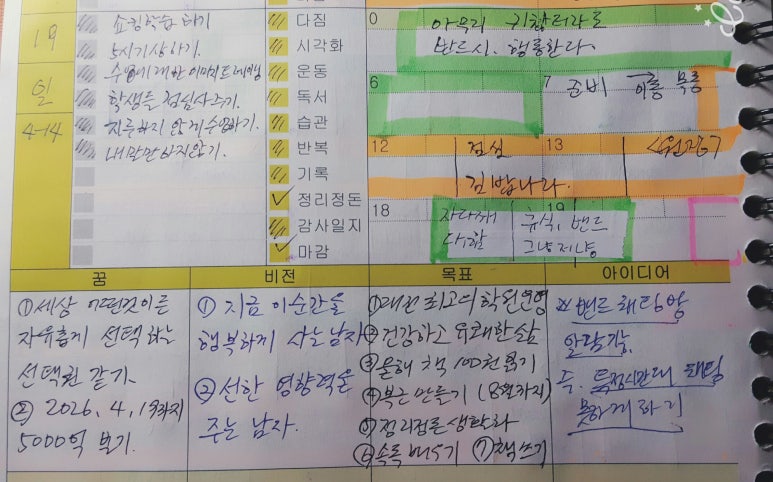 19
일
4-14
쇼킹학습 하기
5시기상하기.
수업에 대한 이미지트레이닝
학생들 점심사주기.
지루하지 않게 수업하기.
내 말만 하지 않기.
다짐
시각화
운동
독서
습관
반복
기록
정리정돈
감사일지
마감
0
아무리 귀찮더라도
반드시. 행동한다.
6
7
준비
12
점심
13
김밥나라.
18
19
휴식. 밴드
그냥저냥
꿈
① 세상 어떤것이든
자유롭게 선택하는
선택권 갖기.
② 2026. 4. 19까지
5000억 벌기.
비전
① 지금 이순간을
행복하게 사는 남자
② 선한 영향력을
주는 남자.
목표
① 대전 최고의 학원 운영
② 건강하고 유쾌한 삶
③ 올해 책 100권 읽기
④ 복근 만들기 (8월까지)
⑤ 정리정돈 생활화
⑥ 속독 배우기 ⑦ 책쓰기
아이디어
※ 밴드 채팅방
알람기능.
즉. 특정시간대 채팅
못하게 하기